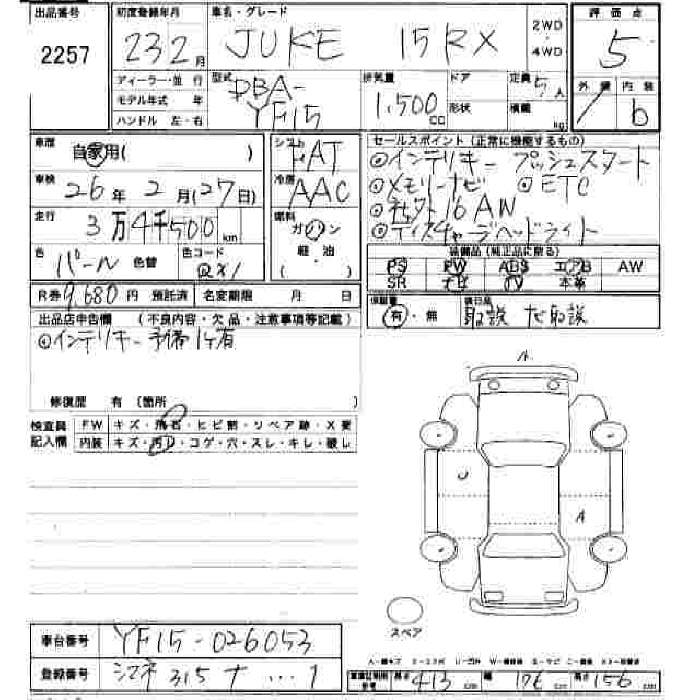 出品番号 初度登録年月 車名・グレード 評価点
2257 23 2月 JUKE 15RX 2WD・4WD 5
ディーラー・並行 型式 排気量 ドア 定員 外装 内装
モデル年式 年 DBA- 1,500cc 形状 積載 5人 kg b
ハンドル 左・右 YF15
車歴 自家用( ) シフト FAT セールスポイント(正常に機能するもの)
車検 26年2月(27日) 冷房 AAC ◎インテリキー プッシュスタート
◎メモリーナビ ◎ETC
走行 3万4千500km 燃料 ガソリン ◎社外16AW
軽・油 ◎ディスチャージヘッドライト
色 パール 色替 色コード QX1 ( ) 装備品(純正品に限る)
PS PW ABS エアB AW
SR ナビ TV 本革
R券 9,680円 預託済 名変期限 月 日 保証書 有・無 後日品 取説 ナビ取説
出品店申告欄 (不良内容・欠品・注意事項等記載)
◎インテリキー予備1ケ有
修復歴 有(箇所 )
検査員 FW キズ・飛石・ヒビ割・リペア跡・X要
記入欄 内装 キズ・汚レ・コゲ・穴・スレ・キレ・破レ
A
U
A
スペア
車台番号 YF15-026053
登録番号 315 ナ ...1
長さ 413cm 幅 176cm 高さ 156cm